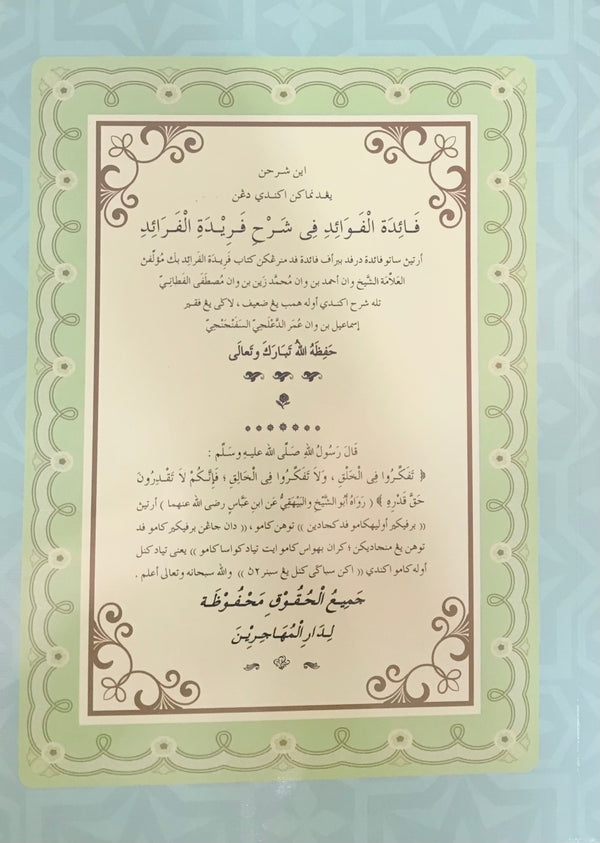 اين شرحن
يڠدنماکن اکندي دڠن
فَائِدَة الْفَوَائِدِ فِى شَرْحِ فَرِيْدَةِ الْفَرَائِدِ
ارتين ساتو فائدة درفد ببراف فائدة فد منرڠکن کتاب فَرِيْدَة الفَرائِد بݢ مُؤَلِّفْن
العَلاَّمَة الشَّيْخ وان أحمد بن وان مُحمَّد زَين بن وان مُصطَفَى الفَطانِيّ
تله شرح اکندي أوله همب يڠ ضعيف ، لاݢي يڠ فقير
إسماعيل بن وان عُمَر الدَّعْلَجِيّ السَفَنْجَنْجِيّ
حَفِظَهُ اللهُ تَبَارَكَ وَتَعالَى
قَالَ رَسُولُ اللهِ صَلَّى الله عليهِ وسَلَّم :
﴿ تَفَكَّرُوا فِى الخَلْقِ ، وَلاَ تَفَكَّرُوا فِى الخَالِقِ ؛ فَإِنَّكُمْ لاَ تَقْدِرُونَ
حَقَّ قَدْرِهِ ﴾ ( رَوَاهُ أبُو الشَّيْخِ والبَيْهَقِيُّ عَن ابنِ عَبَّاسٍ رضى الله عنهما ) أرتين
(( برفيکير أوليهکامو فد کجادين )) توهن کامو ، (( دان جاڠن برفيکير کامو فد
توهن يڠ منجاديکن ؛ کران بهواس کامو ايت تياد کواسا کامو )) يعنى تياد کنل
أوله کامو اکندي (( اکن سباݢي کنل يڠ سبنر٢ن )) والله سبحانه وتعالى أعلم .
جَمِيعُ الْحُقُوْقِ مَحْفُوْظَة
لِدَارِ الْمُهَاجِرِيْنَ